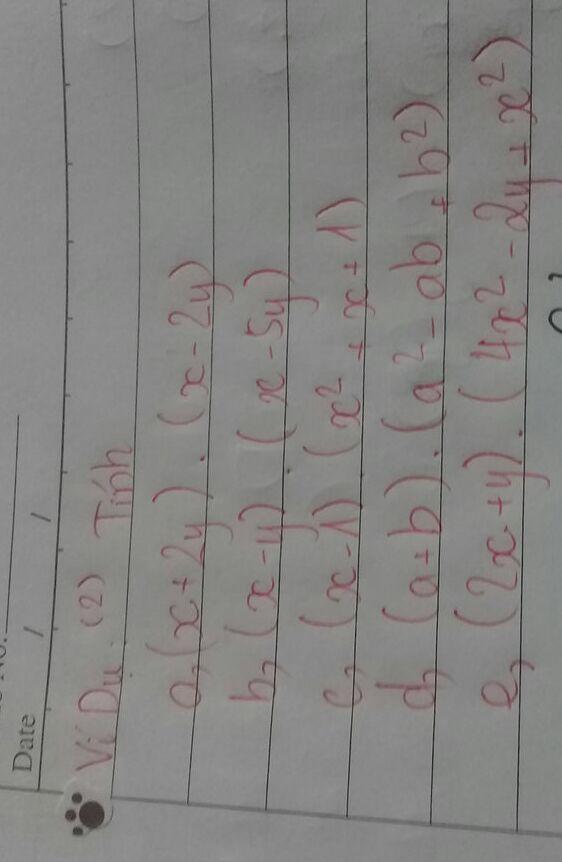 Date / /
Ví Dụ (2) Tính
a, (x+2y).(x-2y)
b, (x-y).(x-5y)
c, (x-1).(x²+x+1)
d, (a+b).(a²-ab+b²)
e, (2x+y).(4x²-2y+x²)